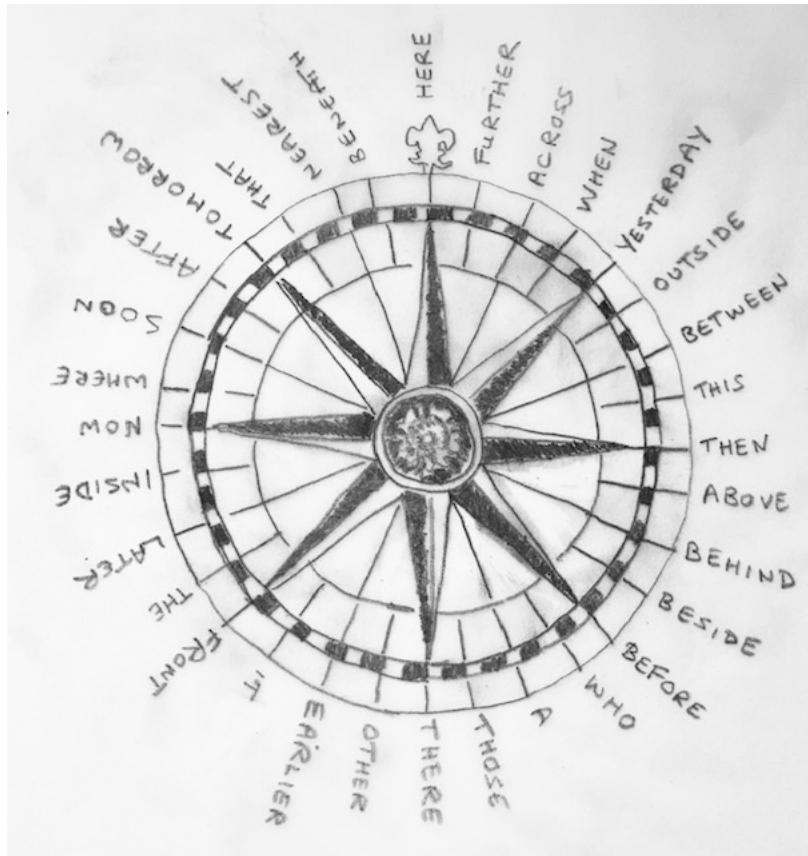 HERE
FURTHER
ACROSS
WHEN
YESTERDAY
OUTSIDE
BETWEEN
THIS
THEN
ABOVE
BEHIND
BESIDE
BEFORE
WHO
A
THOSE
THERE
OTHER
EARLIER
IT
FRONT
THE
LATER
INSIDE
NOW
WHERE
SOON
AFTER
TOMORROW
THAT
NEAREST
BENEATH